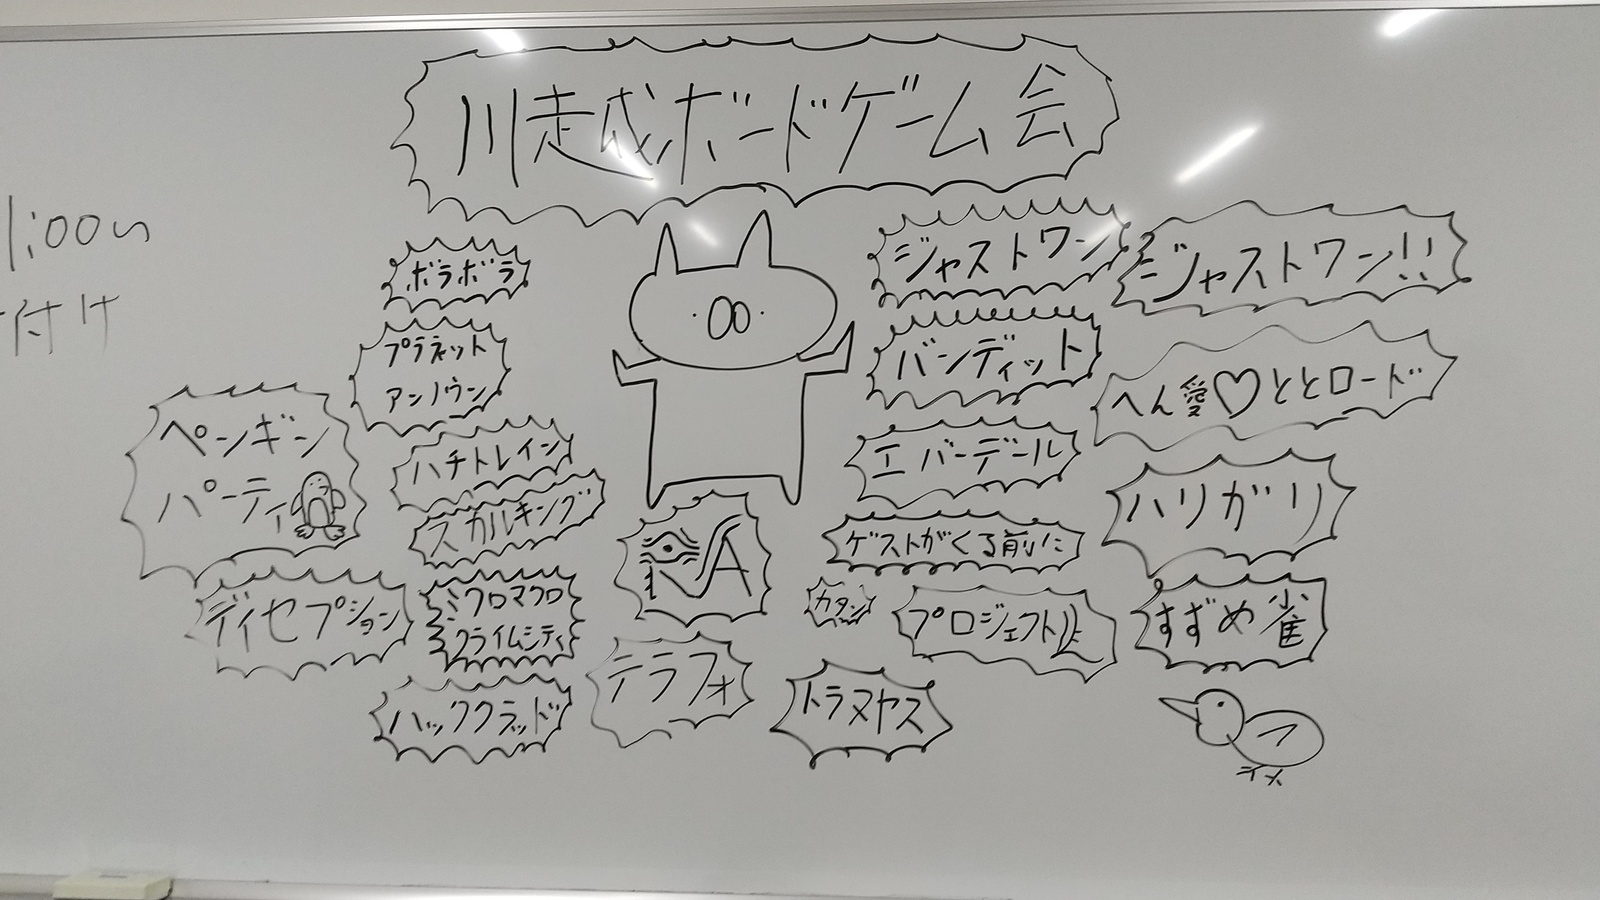 川越ボードゲーム会
1:00~
付け
ボラボラ
プラネット
アンノウン
ペンギン
パーティ
ハチトレイン
スカルキング
ディセプション
ミクロマクロ
クライムシティ
ハッククラッド
RA
テラフォ
ジャストワン
ジャストワン!!
バンディット
へん愛♡ととロード
エバーデール
ハリガリ
ゲストがくる前に
カタン
プロジェクトL
すずめ雀
トラヌヤス